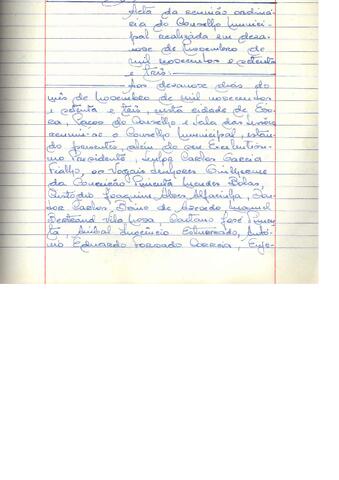 Acta da reunião ordiná-
ria do Conselho Munici-
pal realizada em deza-
nove de Novembro de
mil novecentos e setenta
e três.
Aos dezanove dias do
mês de Novembro de mil novecentos
e setenta e três, nesta cidade de
Paços do Concelho e Sala das
reuniu-se o Conselho Municipal, estan-
do presentes, além do seu Excelentíssi-
mo Presidente, senhor Carlos Garcia
Fialho, os Vogais senhores Guilherme
da Conceição Pimenta Mendes Bolas,
Custódio Joaquim Alves Alfarinha,
Carlos, de Azevedo Manuel
Bertrand Vila Nova, Caetano José Pimen-
ta, Aníbal Inocêncio Estronado, Antó-
nio Eduardo Torrado Correia,